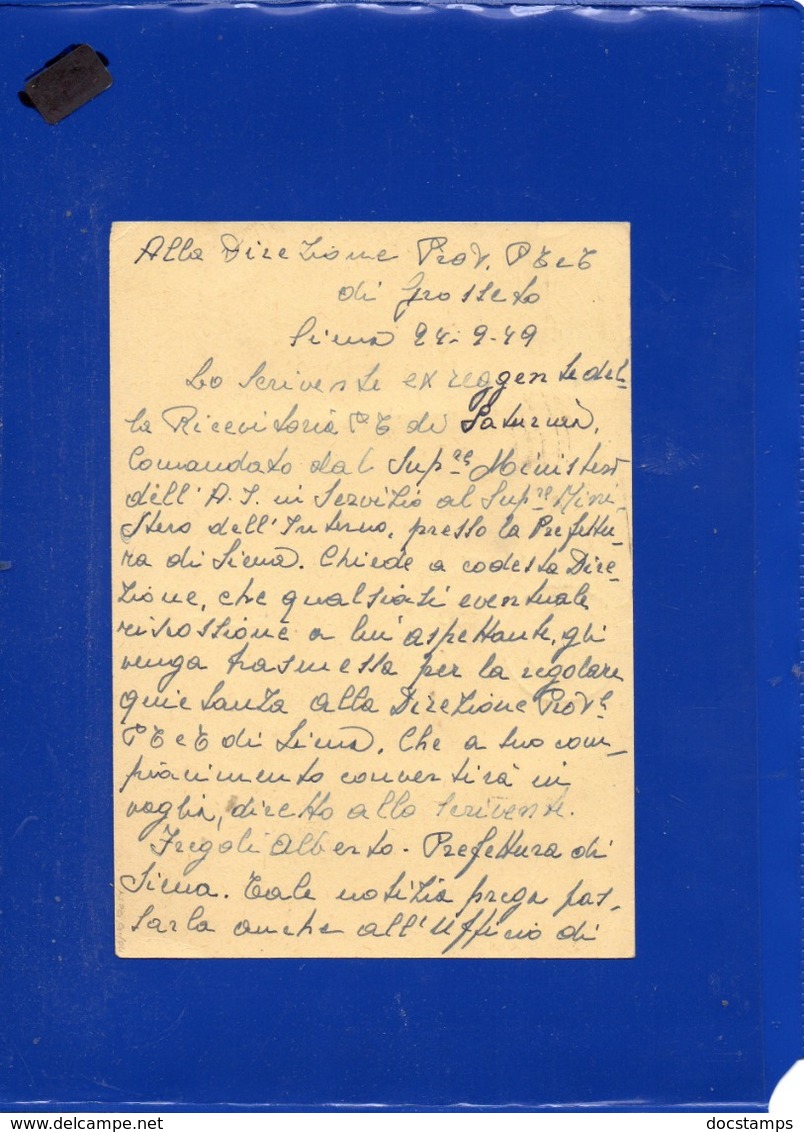 Alla Direzione Prov. P T e T
di Grosseto
Siena 24-9-49
Lo scrivente ex reggente del-
la Ricevitoria P T di Saturnia,
Comandato dal Sup.re Ministero
dell'A. I. in Servizio al Sup.re Mini-
stero dell'Interno, presso la Prefettu-
ra di Siena. Chiede a codesta Dire-
zione, che qualsiasi eventuale
riscossione a lui aspettante, gli
venga trasmessa per la regolare
quietanza alla Direzione Prov.le
P T e T di Siena. Che a suo com-
piacimento convertirà in
vaglia, diretto allo scrivente.
Fregoli Alberto - Prefettura di
Siena. Tale notizia prega pas-
sarla anche all'Ufficio di
docstamps